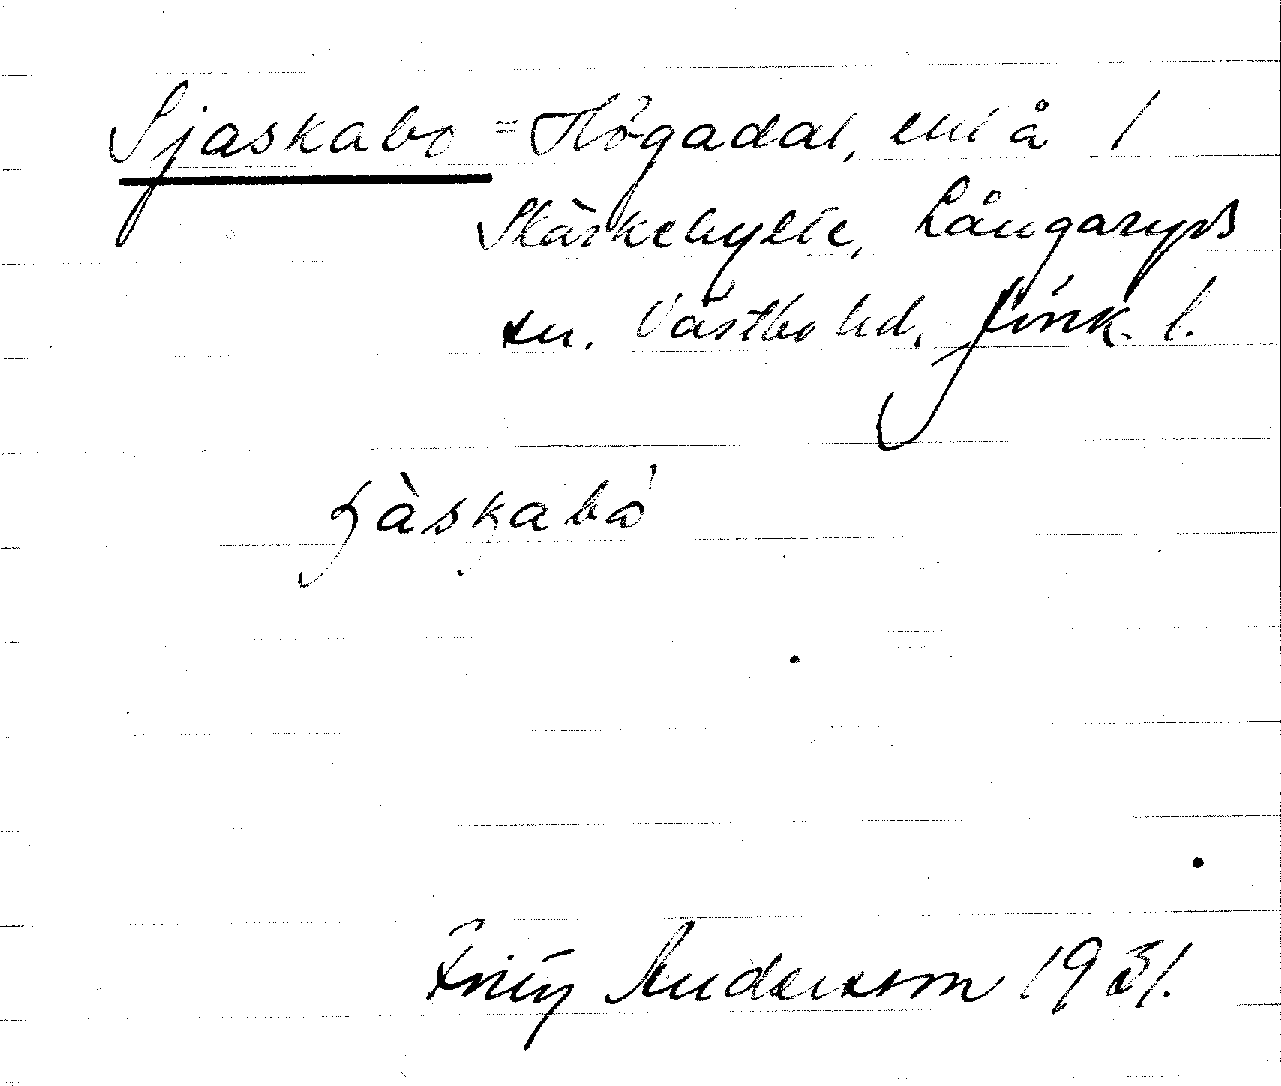 Sjaskabo = Högadal, enl å 1
Skäskehylte, Långaryds
sn. Västbo hd, Jönk. l.
jàskabó
Andersson 1931.